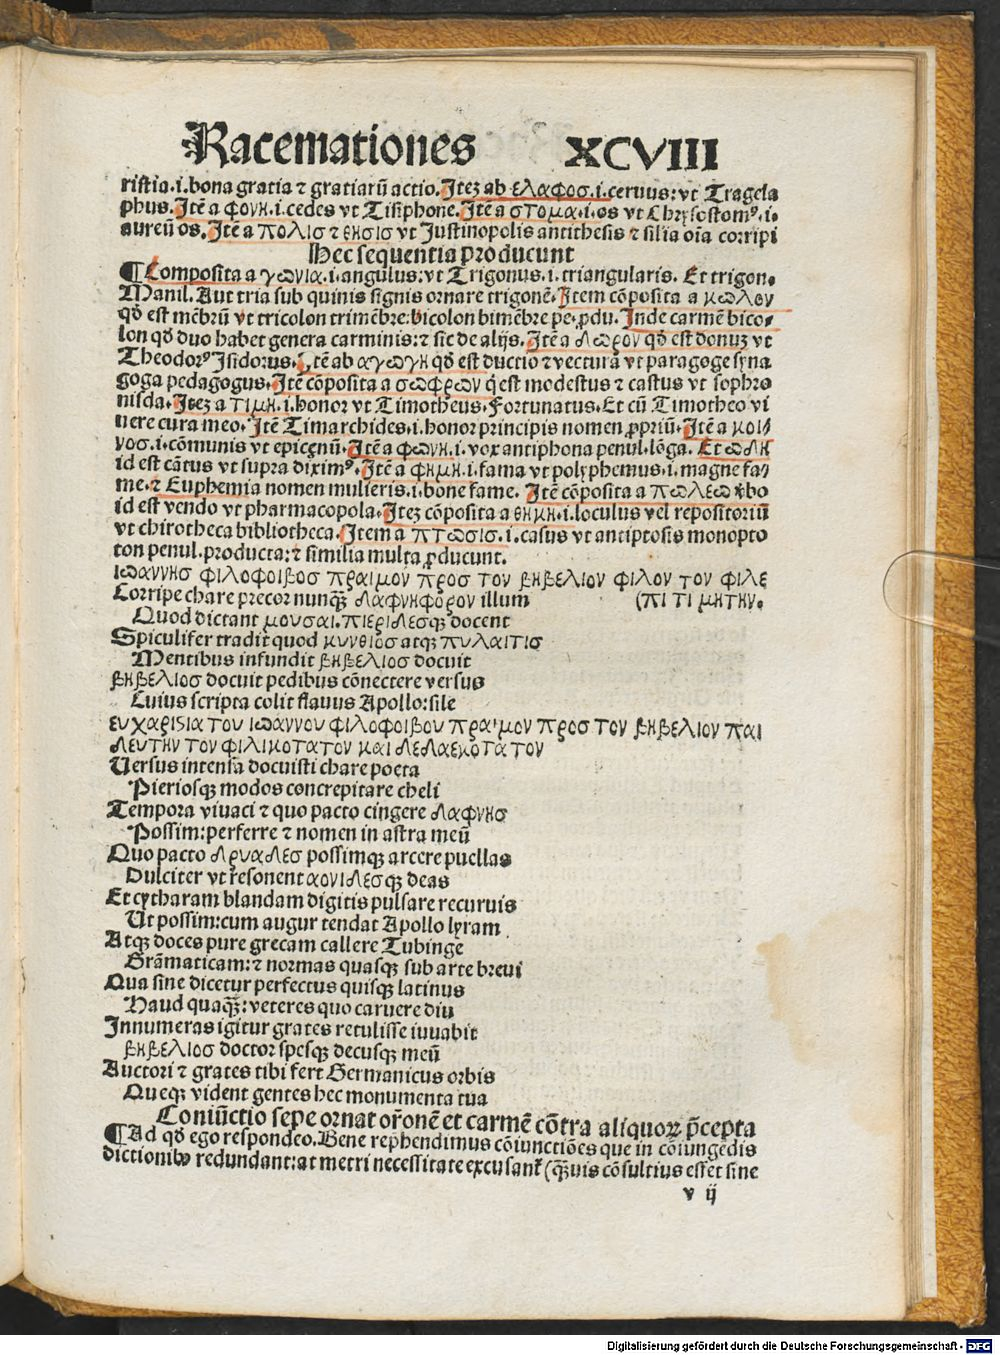 Racemationes XCVIII
ristia.i.bona gratia ⁊ gratiarū actio. Itez ab ελαφοσ.i.ceruus: vt Tragela
phus. Itē a φονη.i.cedes vt Tisiphone. Itē a στομα.i.os vt Chrysostomꝰ.i.
aureū os. Itē a πολισ ⁊ θησισ vt Justinopolis antithesis ⁊ silia oīa corripi
Hec sequentia producunt
¶ Composita a γωνια.i.angulus: vt Trigonus.i.triangularis. Et trigon.
Manil. Aut tria sub quinis signis ornare trigonē. Item cōposita a κωλον
qđ est mēbrū vt tricolon trimēbre: bicolon bimēbre pe. ꝓdu. Inde carmē bico-
lon qđ duo habet genera carminis: ⁊ sic de alijs. Itē a δωρον qđ est donuz vt
Theodorꝰ Isidorus. Itē ab αγωγη qđ est ductio ⁊ vectura vt paragoge syna
goga pedagogus. Itē cōposita a σωφρων q̇ est modestus ⁊ castus vt sophro
nisda. Itez a τιμη.i.honor vt Timotheus. Fortunatus. Et cū Timotheo vi
uere cura meo. Itē Timarchides.i.honor principis nomen ꝓpriū. Itē a κοι-
νοσ.i.cōmunis vt epicenū. Itē a φωνη.i.vox antiphona penul. lōga. Et ωδη
id est cātus vt supra diximꝰ. Itē a φημη.i.fama vt polyphemus.i.magne fa-
me. ⁊ Euphemia nomen mulieris.i.bone fame. Itē cōposita a πωλεω ꝟbo
id est vendo vt pharmacopola. Itez cōposita a θηκη.i.loculus vel repositoriū
vt chirotheca bibliotheca. Item a πτωσισ.i.casus vt antiptosis monopto
ton penul. producta: ⁊ similia multa ꝓducunt.
ιωαννησ φιλοφοιβοσ πραιμον προσ τον βηβελιον φιλον τον φιλε
Corripe chare precor nunꝗ̄ δαφνηφορον illum (πι τι μητην.
Quod dictant μουσαι. πιεριδεσqꝫ docent
Spiculifer tradit quod κυνθιοσ atqꝫ πυλαιτισ
Mentibus infundit βηβελιοσ docuit
βηβελιοσ docuit pedibus cōnectere versus
Cuius scripta colit flauus Apollo: sile
ευχαριϛια του ιωαννου φιλοφοιβου πραιμον προσ τον βηβελιον παι
δευτην τον φιλικοτατον και δεδαεκοτατον
Versus intensa docuisti chare poeta
Pieriosqꝫ modos concrepitare cheli
Tempora viuaci ⁊ quo pacto cingere δαφνησ
Possim: perferre ⁊ nomen in astra meū
Quo pacto δρυαδεσ possimqꝫ arcere puellas
Dulciter vt resonent αονιδεσqꝫ deas
Et cytharam blandam digitis pulsare recuruis
Ut possim: cum augur tendat Apollo lyram
Atqꝫ doces pure grecam callere Tubinge
Grāmaticam: ⁊ normas quasqꝫ sub arte breui
Qua sine dicetur perfectus quisqꝫ latinus
Haud quaꝗ̄: veteres quo caruere diu
Innumeras igitur grates retulisse iuuabit
βηβελιοσ doctor spesqꝫ decusqꝫ meū
Auctori ⁊ grates tibi fert Germanicus orbis
Queqꝫ vident gentes hec monumenta tua
Coniūctio sepe ornat or̄onē et carmē cōtra aliquoꝝ p̄cepta
¶ Ad qđ ego respondeo. Bene rep̄hendimus cōiunctiōes que in cōiungēdis
dictionibꝰ redundant: at metri necessitate excusant᷑ (ꝗ̄uis cōsultius esset sine
v ij
Digitalisierung gefördert durch die Deutsche Forschungsgemeinschaft - DFG